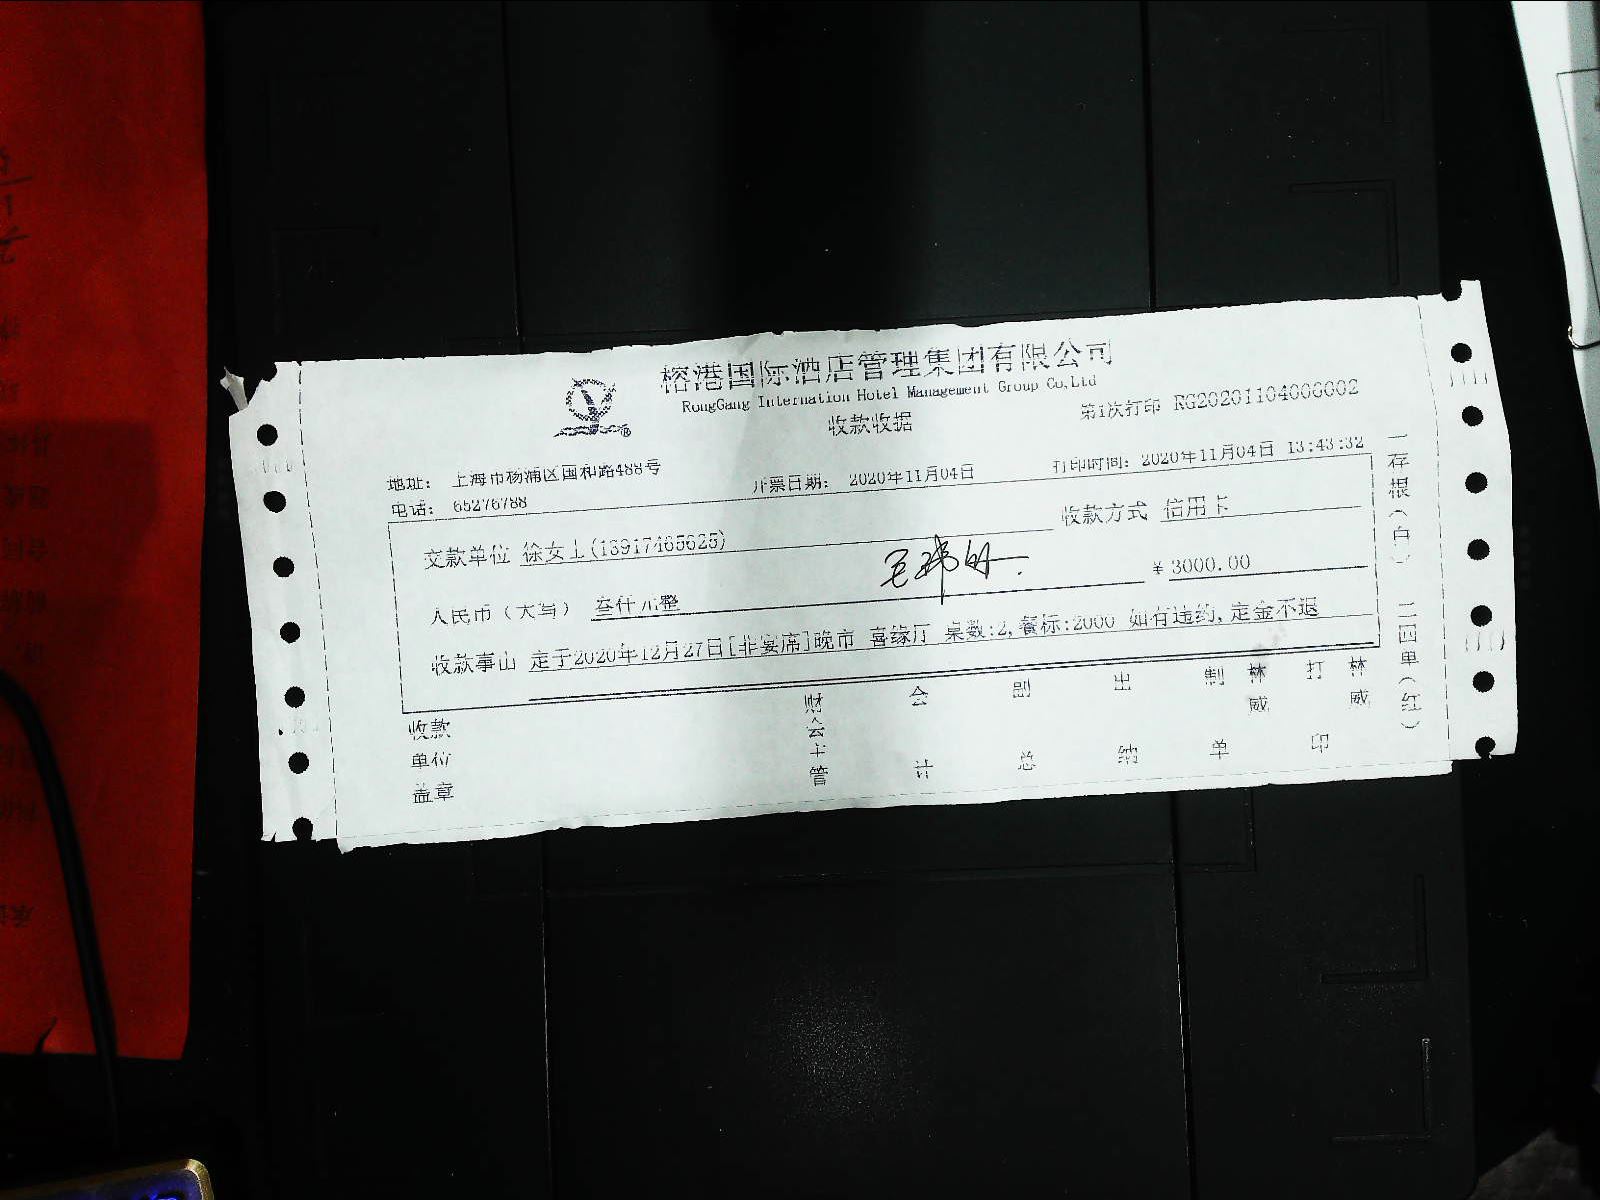 榕港国际酒店管理集团有限公司
RongGang Internation Hotel Management Group Co,Ltd
收款收据
第1次打印 RG20201104000002
地址: 上海市杨浦区国和路488号
开票日期: 2020年11月04日
打印时间: 2020年11月04日 13:43:32
电话: 65276788
交款单位 徐女士(13917465625)
收款方式 信用卡
人民币(大写) 叁仟元整
¥ 3000.00
收款事由 定于2020年12月27日[非宴席]晚市 喜缘厅 桌数:2,餐标:2000 如有违约,定金不退
收款单位盖章
财会主管
会计
副总
出纳
制单 林威
打印 林威
一存根(白) 二四单(红)